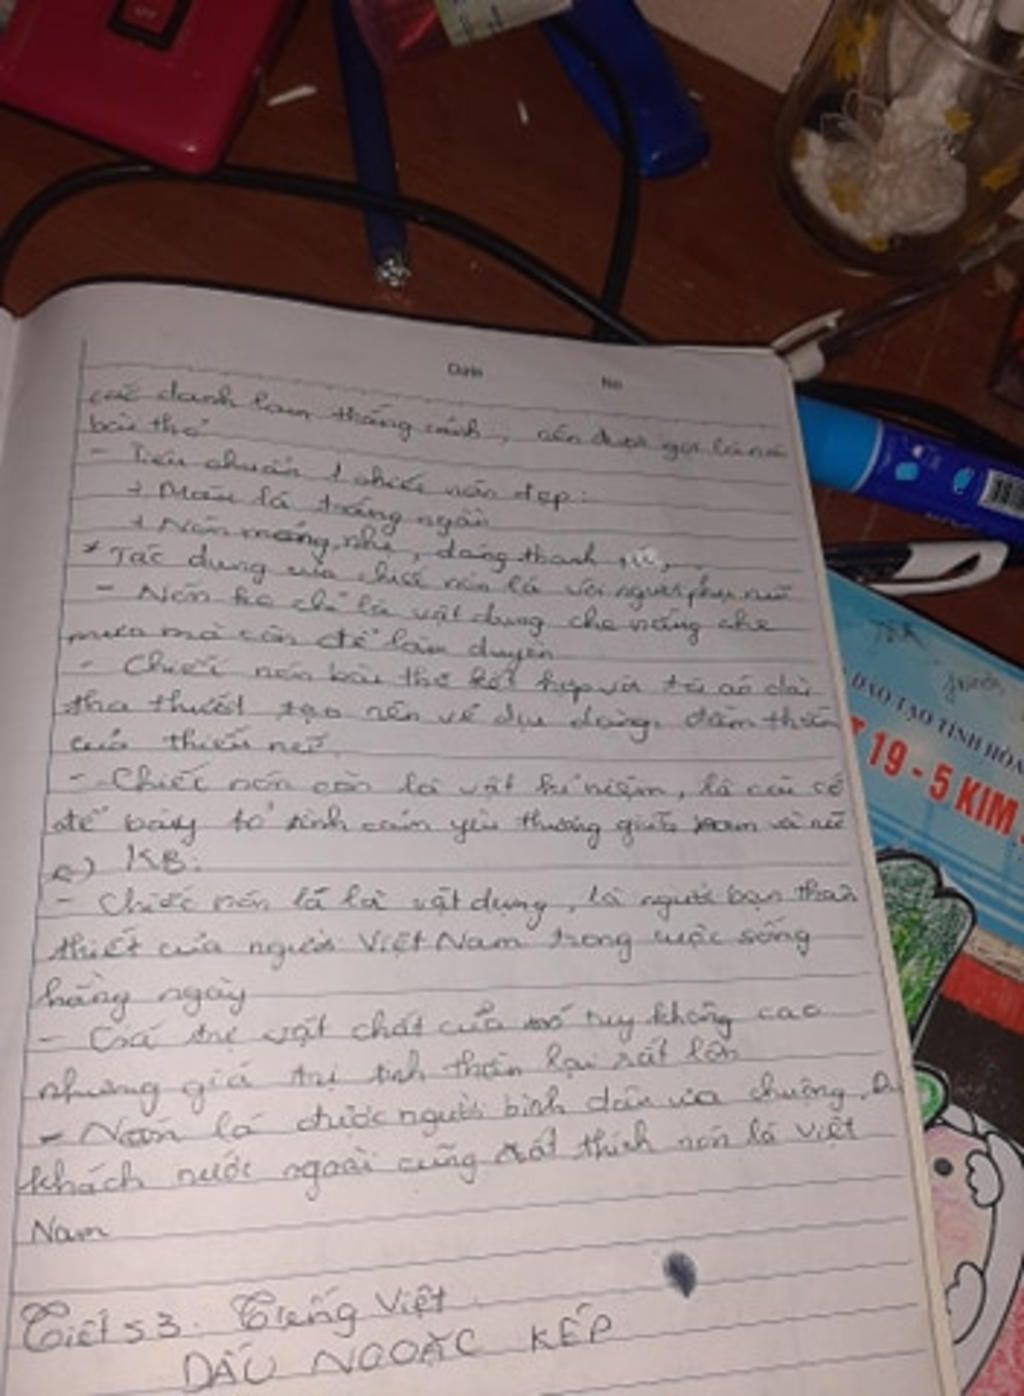 OFF
Date No
các danh lam thắng cảnh, nên được gọi là nón
bài thơ
- Tiêu chuẩn 1 chiếc nón đẹp:
+ Màu lá trắng ngần
+ Nón mỏng, nhẹ, dáng thanh
* Tác dụng của chiếc nón lá với người phụ nữ
- Nón ko chỉ là vật dụng che nắng che
mưa mà còn để làm duyên
- Chiếc nón bài thơ kết hợp với tà áo dài
tha thướt tạo nên vẻ dịu dàng, đằm thắm
của thiếu nữ.
- Chiếc nón còn là vật kỉ niệm, là cái cớ
để bày tỏ tình cảm yêu thương giữa nam và nữ
c) KB:
- Chiếc nón lá là vật dụng, là người bạn thân
thiết của người Việt Nam trong cuộc sống
hằng ngày
- Giá trị vật chất của nó tuy không cao
nhưng giá trị tinh thần lại rất lớn
- Nón lá được người bình dân ưa chuộng, Du
khách nước ngoài cũng rất thích nón lá Việt
Nam
Tiết 53. Tiếng Việt
DẤU NGOẶC KÉP
ĐÀO TẠO TỈNH HÒA
19 - 5 KIM